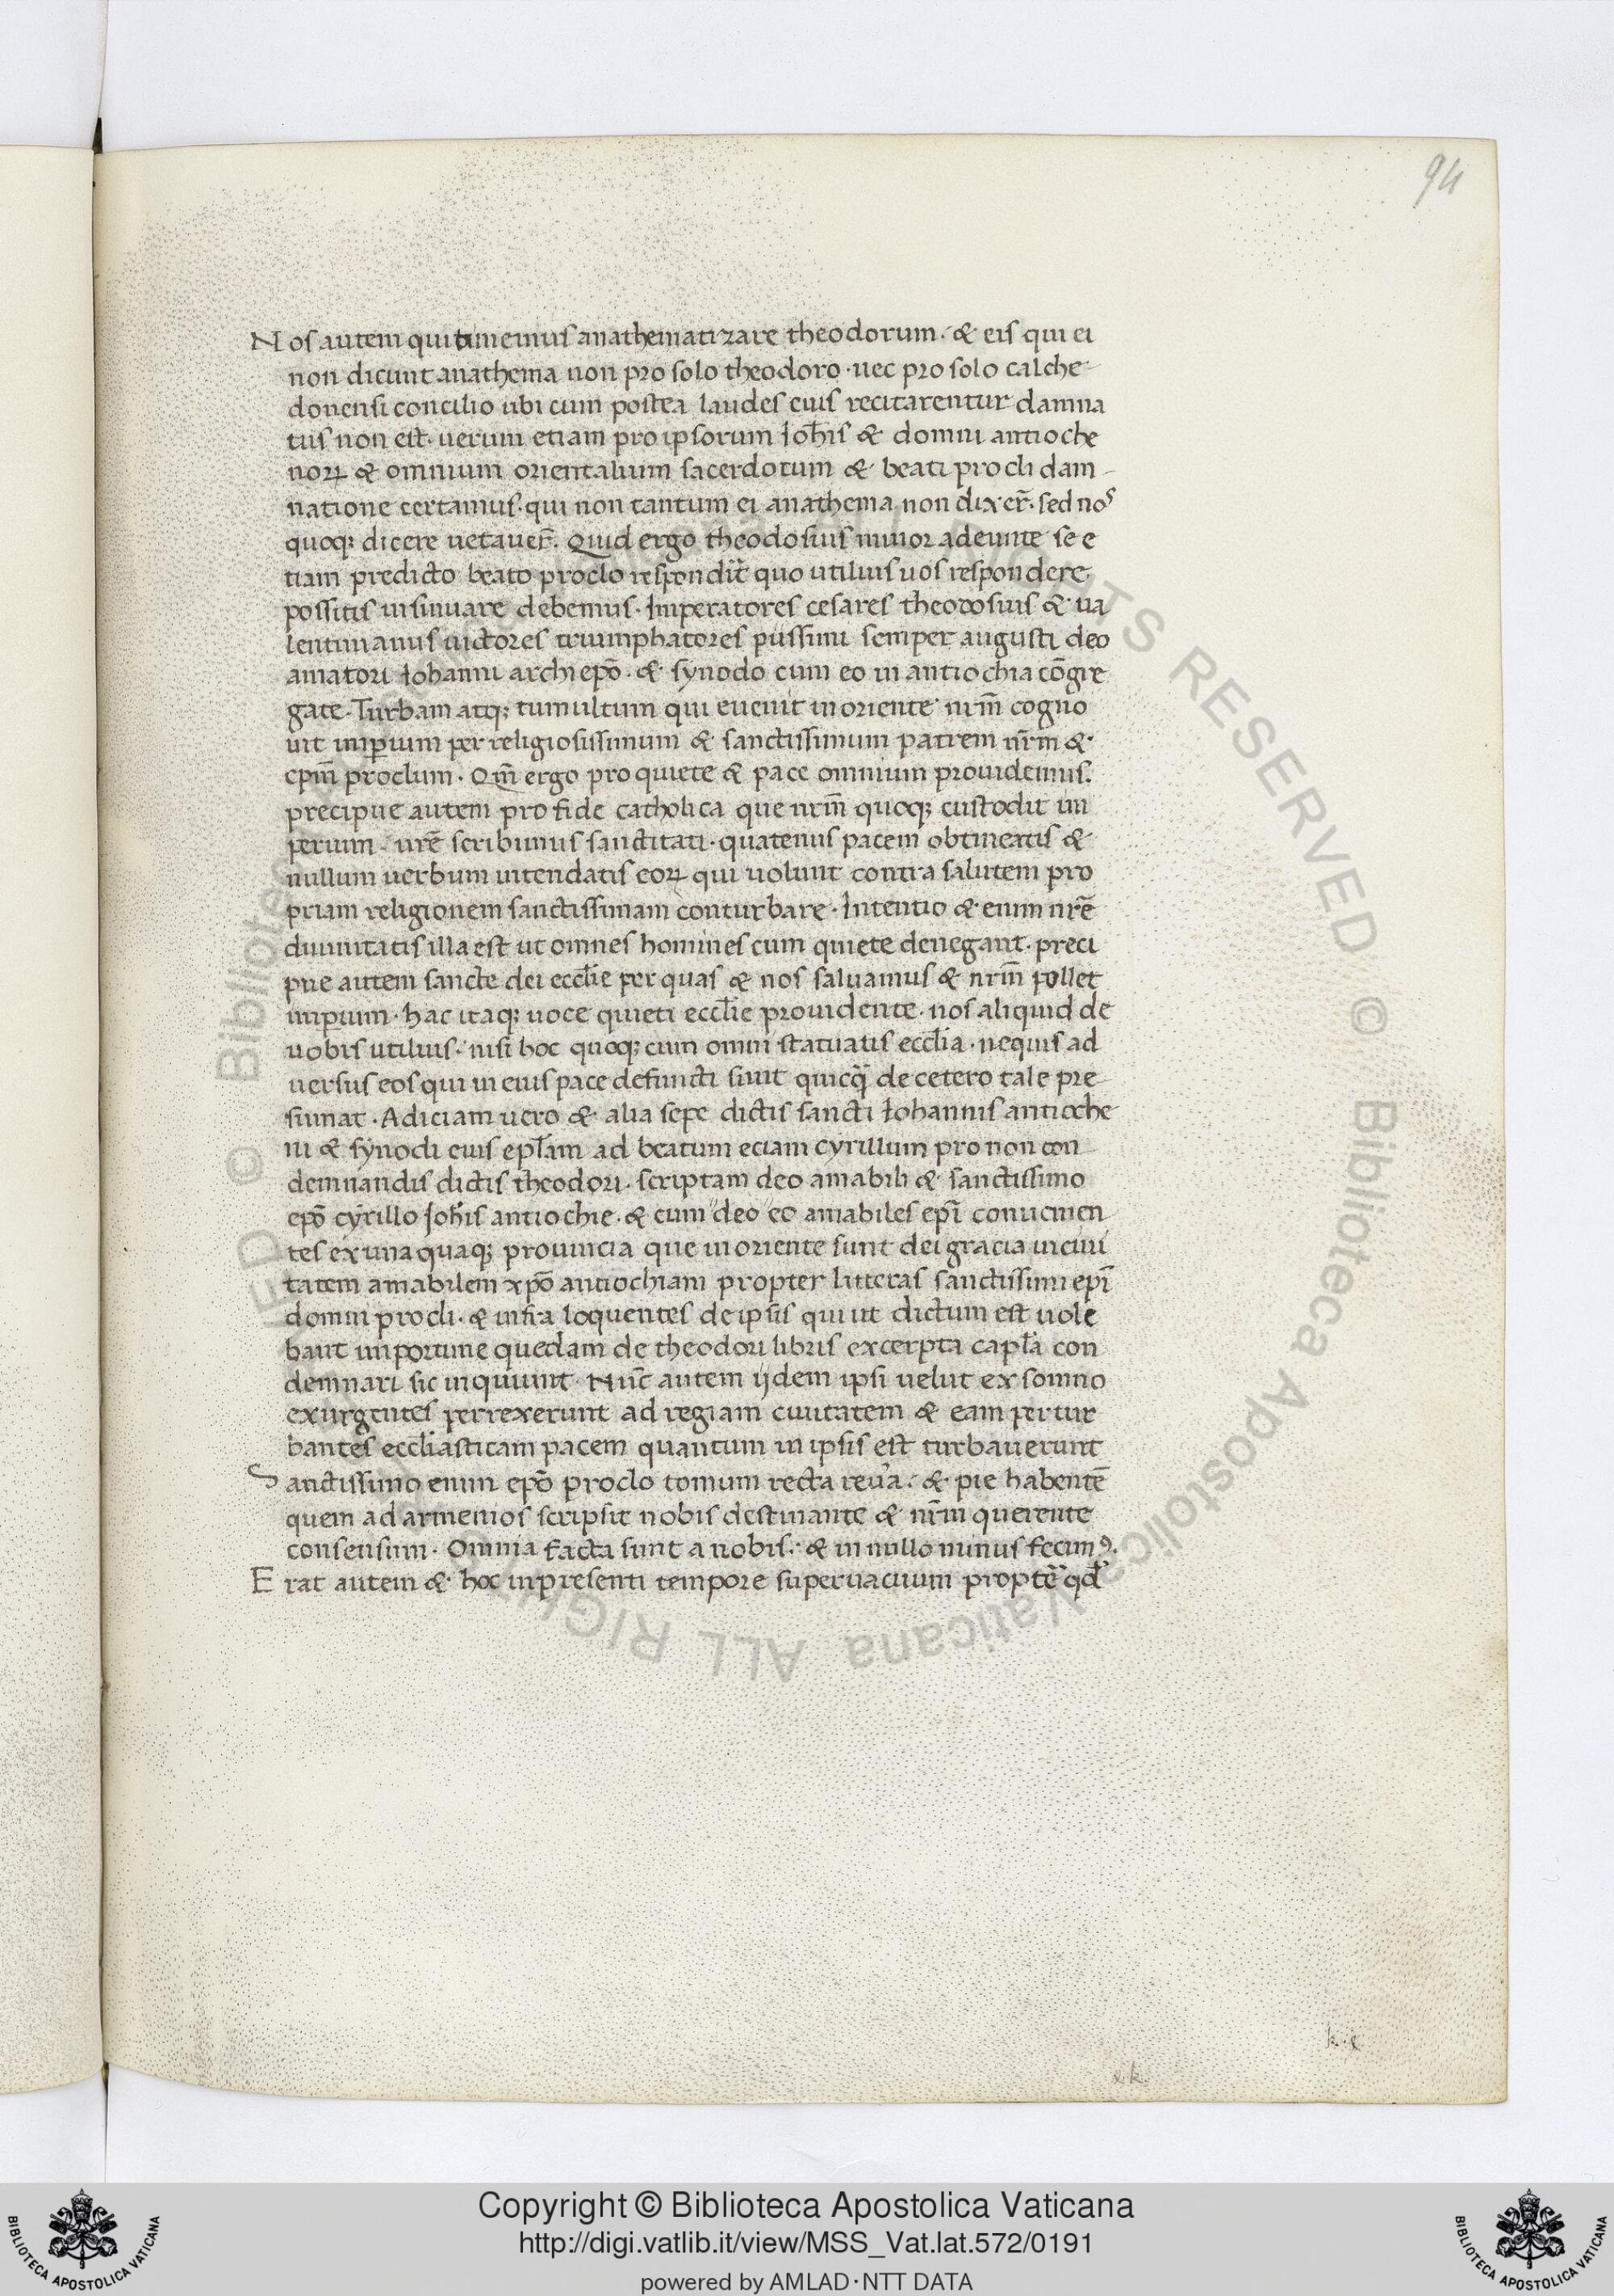 94
Nos autem qui timemus anathematizare theodorum · & eis qui ei
non dicunt anathema non pro solo theodoro · nec pro solo calche
donensi concilio ubi cum postea laudes eius recitarentur damna
tus non est · uerum etiam pro ipsorum Ioh̄is & domni antioche
noꝝ & omnium orientalium sacerdotum & beati procli dam-
natione certamus · qui non tantum ei anathema non dixer̄ · sed nos
quoqꝫ dicere uetauer̄ · Quid ergo theodosius minor adeunte se e
tiam predicto beato proclo respondit quo utilius uos respondere
possitis insinuare debemus · Imperatores cesares theodosius & ua
lentinianus uictores triumphatores piissimi semper augusti deo
amatori Iohanni archiepo̅ · & synodo cum eo in antiochia co̅gre
gate · Turbam atqꝫ tumultum qui euenit in oriente nr̄m cogno
uit imꝑium per religiosissimum & sanctissimum patrem nr̄m &
epm̄ proclum · Qm̄ ergo pro quiete & pace omnium prouidemus ·
precipue autem pro fide catholica que nr̄m quoqꝫ custodit im
perium · ur̄e scribimus sanctitati · quatenus pacem obtineatis &
nullum uerbum intendatis eoꝝ qui uolunt contra salutem pro
priam religionem sanctissimam conturbare · Intentio & enim nr̄e
diuinitatis illa est ut omnes homines cum quiete denegant · preci
pue autem sancte dei eccl̄ie per quas & nos saluamus & nr̄m pollet
imꝑium · hac itaqꝫ uoce quieti eccl̄ie prouidente · nos aliquid de
uobis utilius · nisi hoc quoqꝫ cum omni statuatis eccl̄ia · nequis ad
uersus eos qui in eius pace defuncti sunt quicq̄ de cetero tale pre
sumat · Adiciam uero & alia sepe dictis sancti Iohannis antioche
ni & synodi eius epl̄am ad beatum eciam cyrillum pro non con
demnandis dictis theodori · scriptam deo amabili & sanctissimo
epo̅ cyrillo Ioh̄is antiochie · & cum deo eo amabiles epī conuenien
tes ex una quaqꝫ prouincia que in oriente sunt dei gracia in ciui
tatem amabilem xpo̅ antiochiam propter litteras sanctissimi epī
domni procli · & infra loquentes de ipsis qui ut dictum est uole
bant importune quedam de theodori libris excerpta capl̄a con
demnari sic inquiunt · Nūc autem ijdem ipsi uelut ex somno
exurgentes perrexerunt ad regiam ciuitatem & eam pertur
bantes eccl̄iasticam pacem quantum in ipsis est turbauerunt
Sanctissimo enim epo̅ proclo tomum recta reu̅a · & pie habente̅
quem ad armenios scripsit nobis destinante & nr̄m querente
consensum · Omnia facta sunt a nobis · & in nullo minus fecimꝰ ·
Erat autem & hoc in presenti tempore superuacuum propte̅ qd̄
k · e
© Biblioteca Apostolica Vaticana ALL RIGHTS RESERVED
Copyright © Biblioteca Apostolica Vaticana
http://digi.vatlib.it/view/MSS_Vat.lat.572/0191
powered by AMLAD·NTT DATA
BIBLIOTECA APOSTOLICA VATICANA
BIBLIOTECA APOSTOLICA VATICANA